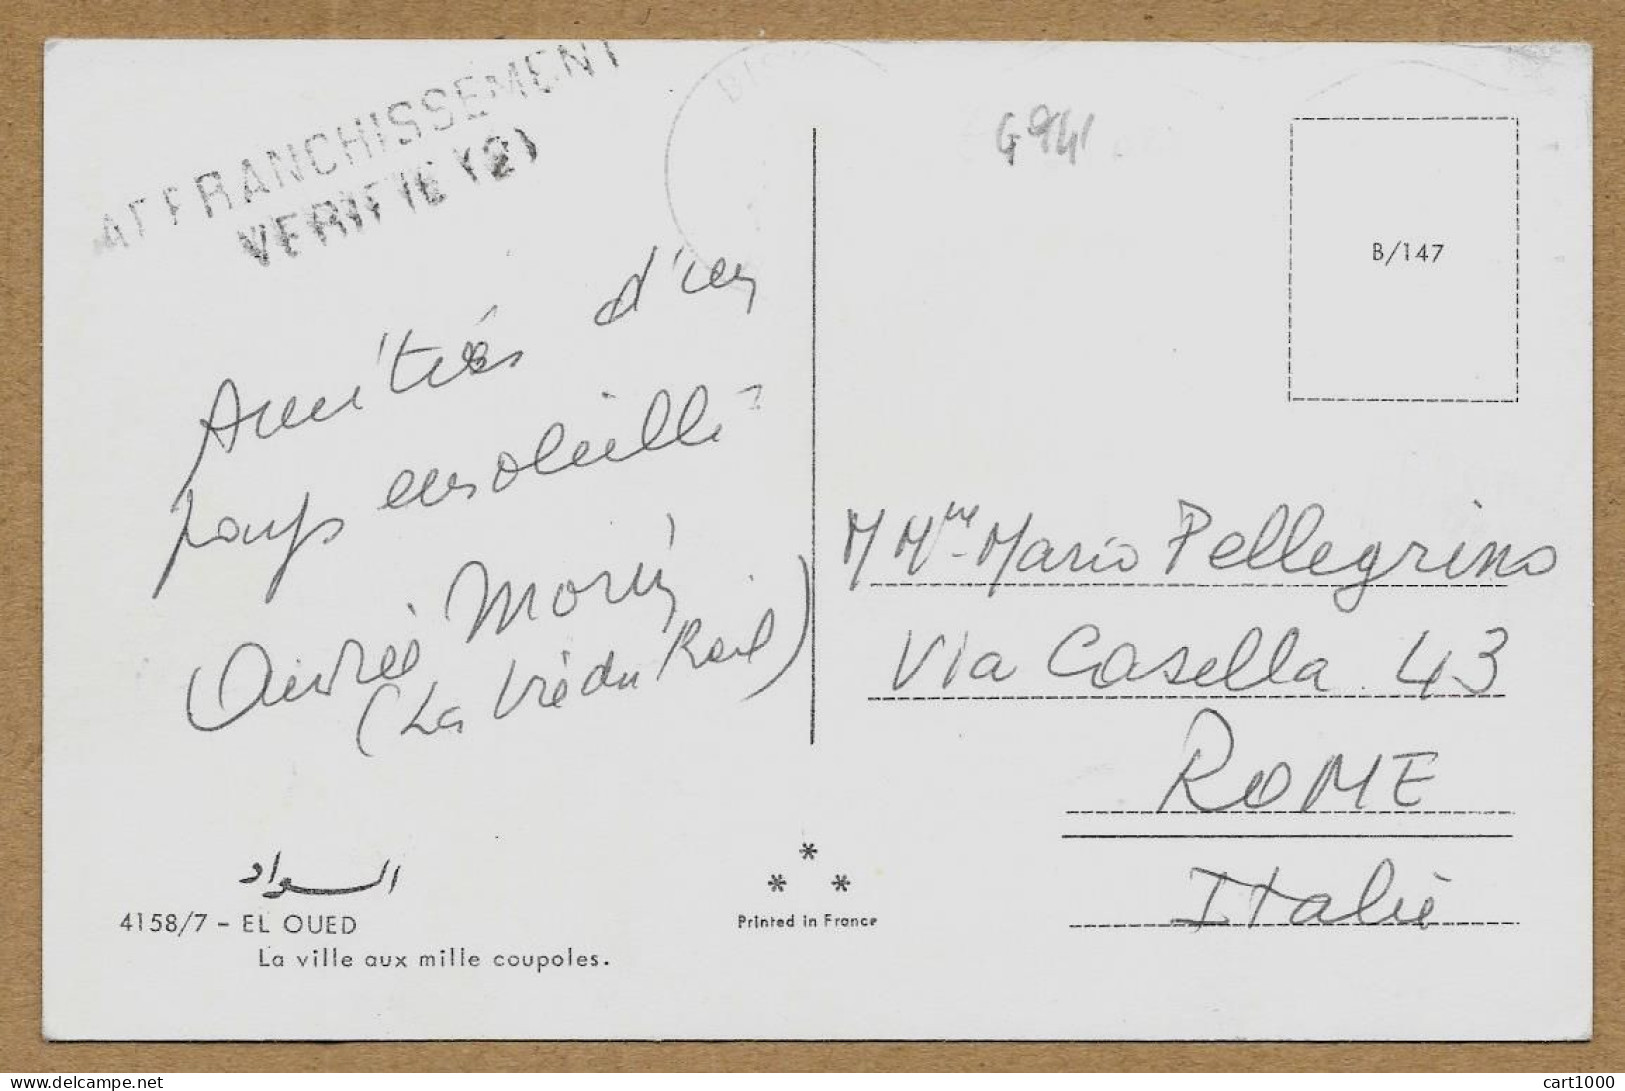 AFFRANCHISSEMENT
VERIFIE (2)
G941
B/147
Amitiés d'un
pays ensoleillé
André Morin
(La Vie du Rail)
M Mme Mario Pellegrino
Via Casella 43
ROME
Italie
السواد
4158/7 - EL OUED
La ville aux mille coupoles.
Printed in France
cart1000